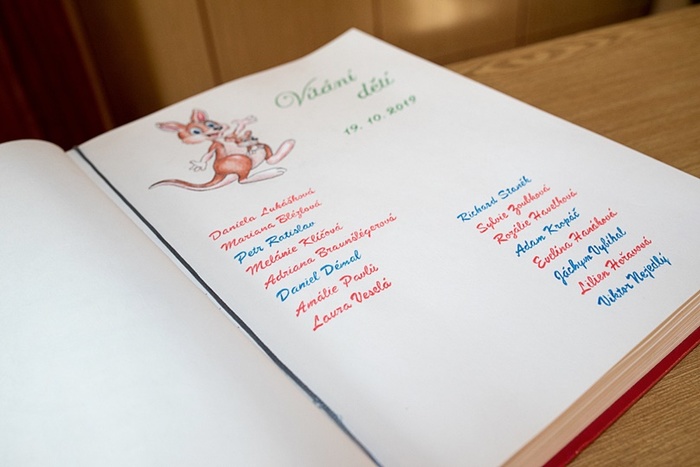 Vítání
dětí
19. 10. 2019
Daniela Lukášková
Mariana Blézlová
Petr Ratislav
Melánie Klíčová
Adriana Braunšlégerová
Daniel Démal
Amálie Pavlů
Laura Veselá
Richard Staněk
Sylvie Zoubková
Rozálie Havelková
Adam Kropáč
Evelína Hanáková
Jáchym Vybíhal
Lilien Hořavová
Viktor Nejedlý